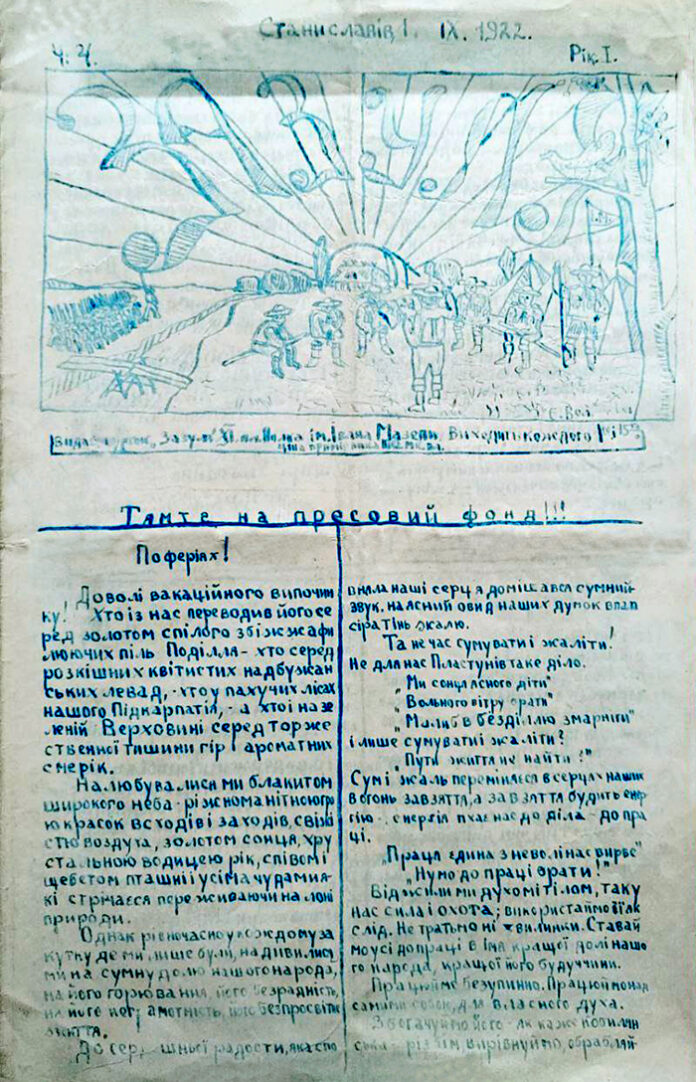 Станиславів 1. IX. 1922.
Ч. 4. Рік. I.
ЗАГУЛА
XI. пл. Полка ім. Івана Мазепи. Виходить кождого
Тямте на пресовий фонд!!!
По феріях!
Доволі вакаційного випочин
ку! Хто із нас переводив його се
ред золотом спілого збіжжа фи
люючих піль Поділля – хто серед
розкішних квітистих надбужан
ських левад, - хто у пахучих лісах
нашого Підкарпатія, - а хто і на зе
леній Верховині серед торже
ственної тишини гір і ароматних
смерік.
Налюбувалися ми блакитом
широкого неба - ріжноманітною гро
ю красок всходів і заходів, свіжі
стю воздуха, золотом сонця, хру
стальною водицею рік, співом і
щебетом пташні і усіма чудами я-
кі стрічаєся переживаючи на лоні
природи.
Однак рівночасно у кождому за
кутку де ми лише були, надивилися
ми на сумну долю нашого народа,
на його горювання, його безрадність,
на його неграмотність, його безпросвітне
життя.
До сердешньої радости, яка спо
вняла наші серця домішався сумний
звук, на ясний овид наших думок впал
сіра тінь жалю.
Та не час сумувати і жаліти!
Не для нас Пластунів таке діло.
„Ми сонця ясного діти"
„Вольного вітру брати"
„Мали б в безділлю змарніти"
і лише сумувати і жаліти?
„Пути життя не найти?"
Сум і жаль перемінився в серцях наших
в огонь завзяття, а завзяття будить енер
гію - енергія пхає нас до діла - до пра
ці.
„Праця єдина з неволі нас вирве"
„Нумо до праці брати!"
Віджили ми духом і тілом, є у
нас сила і охота; використаймо її як
слід. Не тратьмо ні хвилинки. Ставай
мо усі до праці в імя кращої долі нашо
го народа, кращої його будуччини.
Працюймо безупинно. Працюймо над
самими собою, для власного духа.
Збогачуймо його - як каже
вирівнуймо, обрабляй-